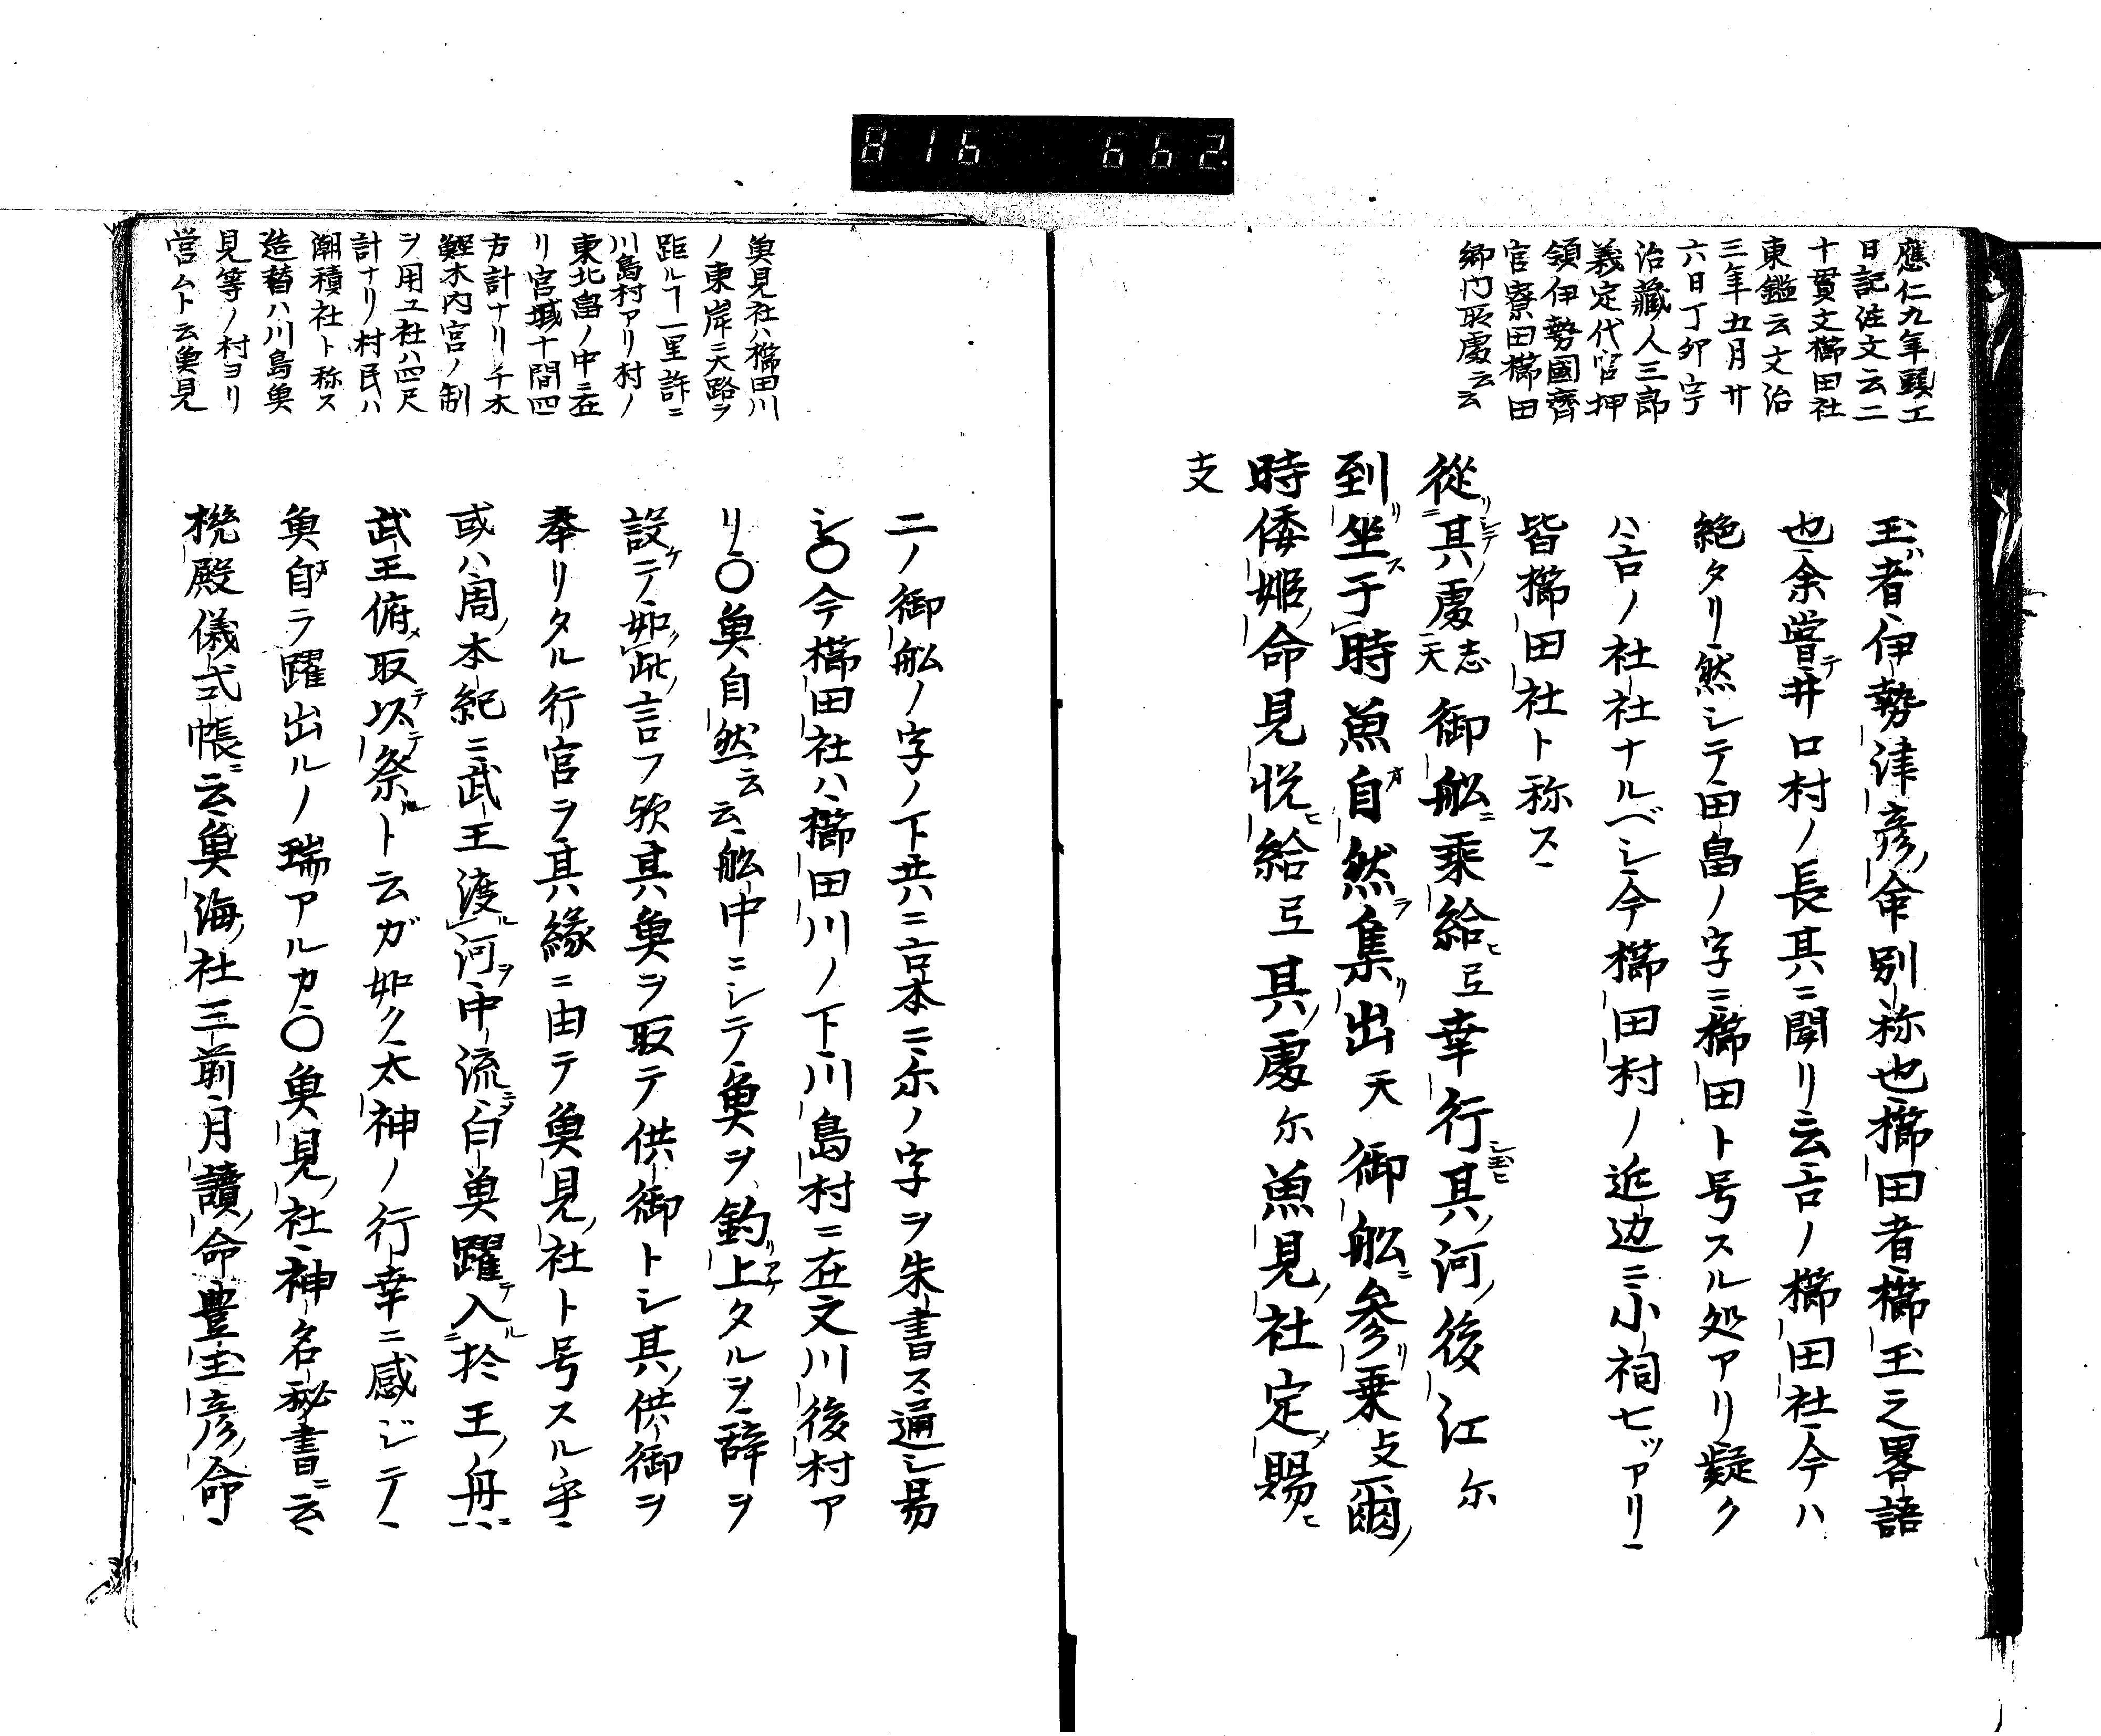 816 662.
應仁九年頭工
日記注文云二
十貫文櫛田社
東鑑云文治
三年五月廿
六日丁卯宇
治藏人三郎
義定代官押
領伊勢國齊
宮寮田櫛田
郷内所處云云
玉者伊勢津彦命別称也櫛田者櫛玉之畧語
也余嘗テ井口村ノ長某ニ聞リ云古ノ櫛田社今ハ
絶タリ然シテ田畠ノ字ニ櫛田ト号スル処アリ疑ク
ハ古ノ社社ナルベシ今櫛田村ノ近辺ニ小祠七ッアリ
皆櫛田社ト称ス
從其處志天御舩乘給弖幸行其河後江尓
到坐于時魚自然集出天御舩參乗支爾
時倭姫命見悦給弖其處尓魚見社定賜
支
魚見社ハ櫛田川
ノ東岸ニ大路ヲ
距ルヿ一里許ニ
川島村アリ村ノ
東北畠ノ中ニ在
リ宮域十間四
方計ナリ千木
鰹木内宮ノ制
ヲ用ユ社ハ四尺
計ナリ村民ハ
潮積社ト称ス
造替ハ川島魚
見等ノ村ヨリ
営ムト云魚見
二ノ御舩ノ字ノ下共ニ古本ニ尓ノ字ヲ朱書ス通シ易
シ〇今櫛田社ハ櫛田川ノ下川島村ニ在文川後村ア
リ〇魚自然云云舩中ニシテ魚ヲ釣上タルヲ辞ヲ
設ケテ如此言フ欤其魚ヲ取テ供御トシ其供御ヲ
奉リタル行宮ヲ其緣ニ由テ魚見社ト号スル乎
或ハ周本紀ニ武王渡河中流白魚躍入於王舟
武王俯取以祭ト云ガ如ク太神ノ行幸ニ感ジテ
魚自ラ躍出ルノ瑞アルカ〇魚見社神名秘書云
機殿儀式帳云魚海社三前月讀命豊玉彦命